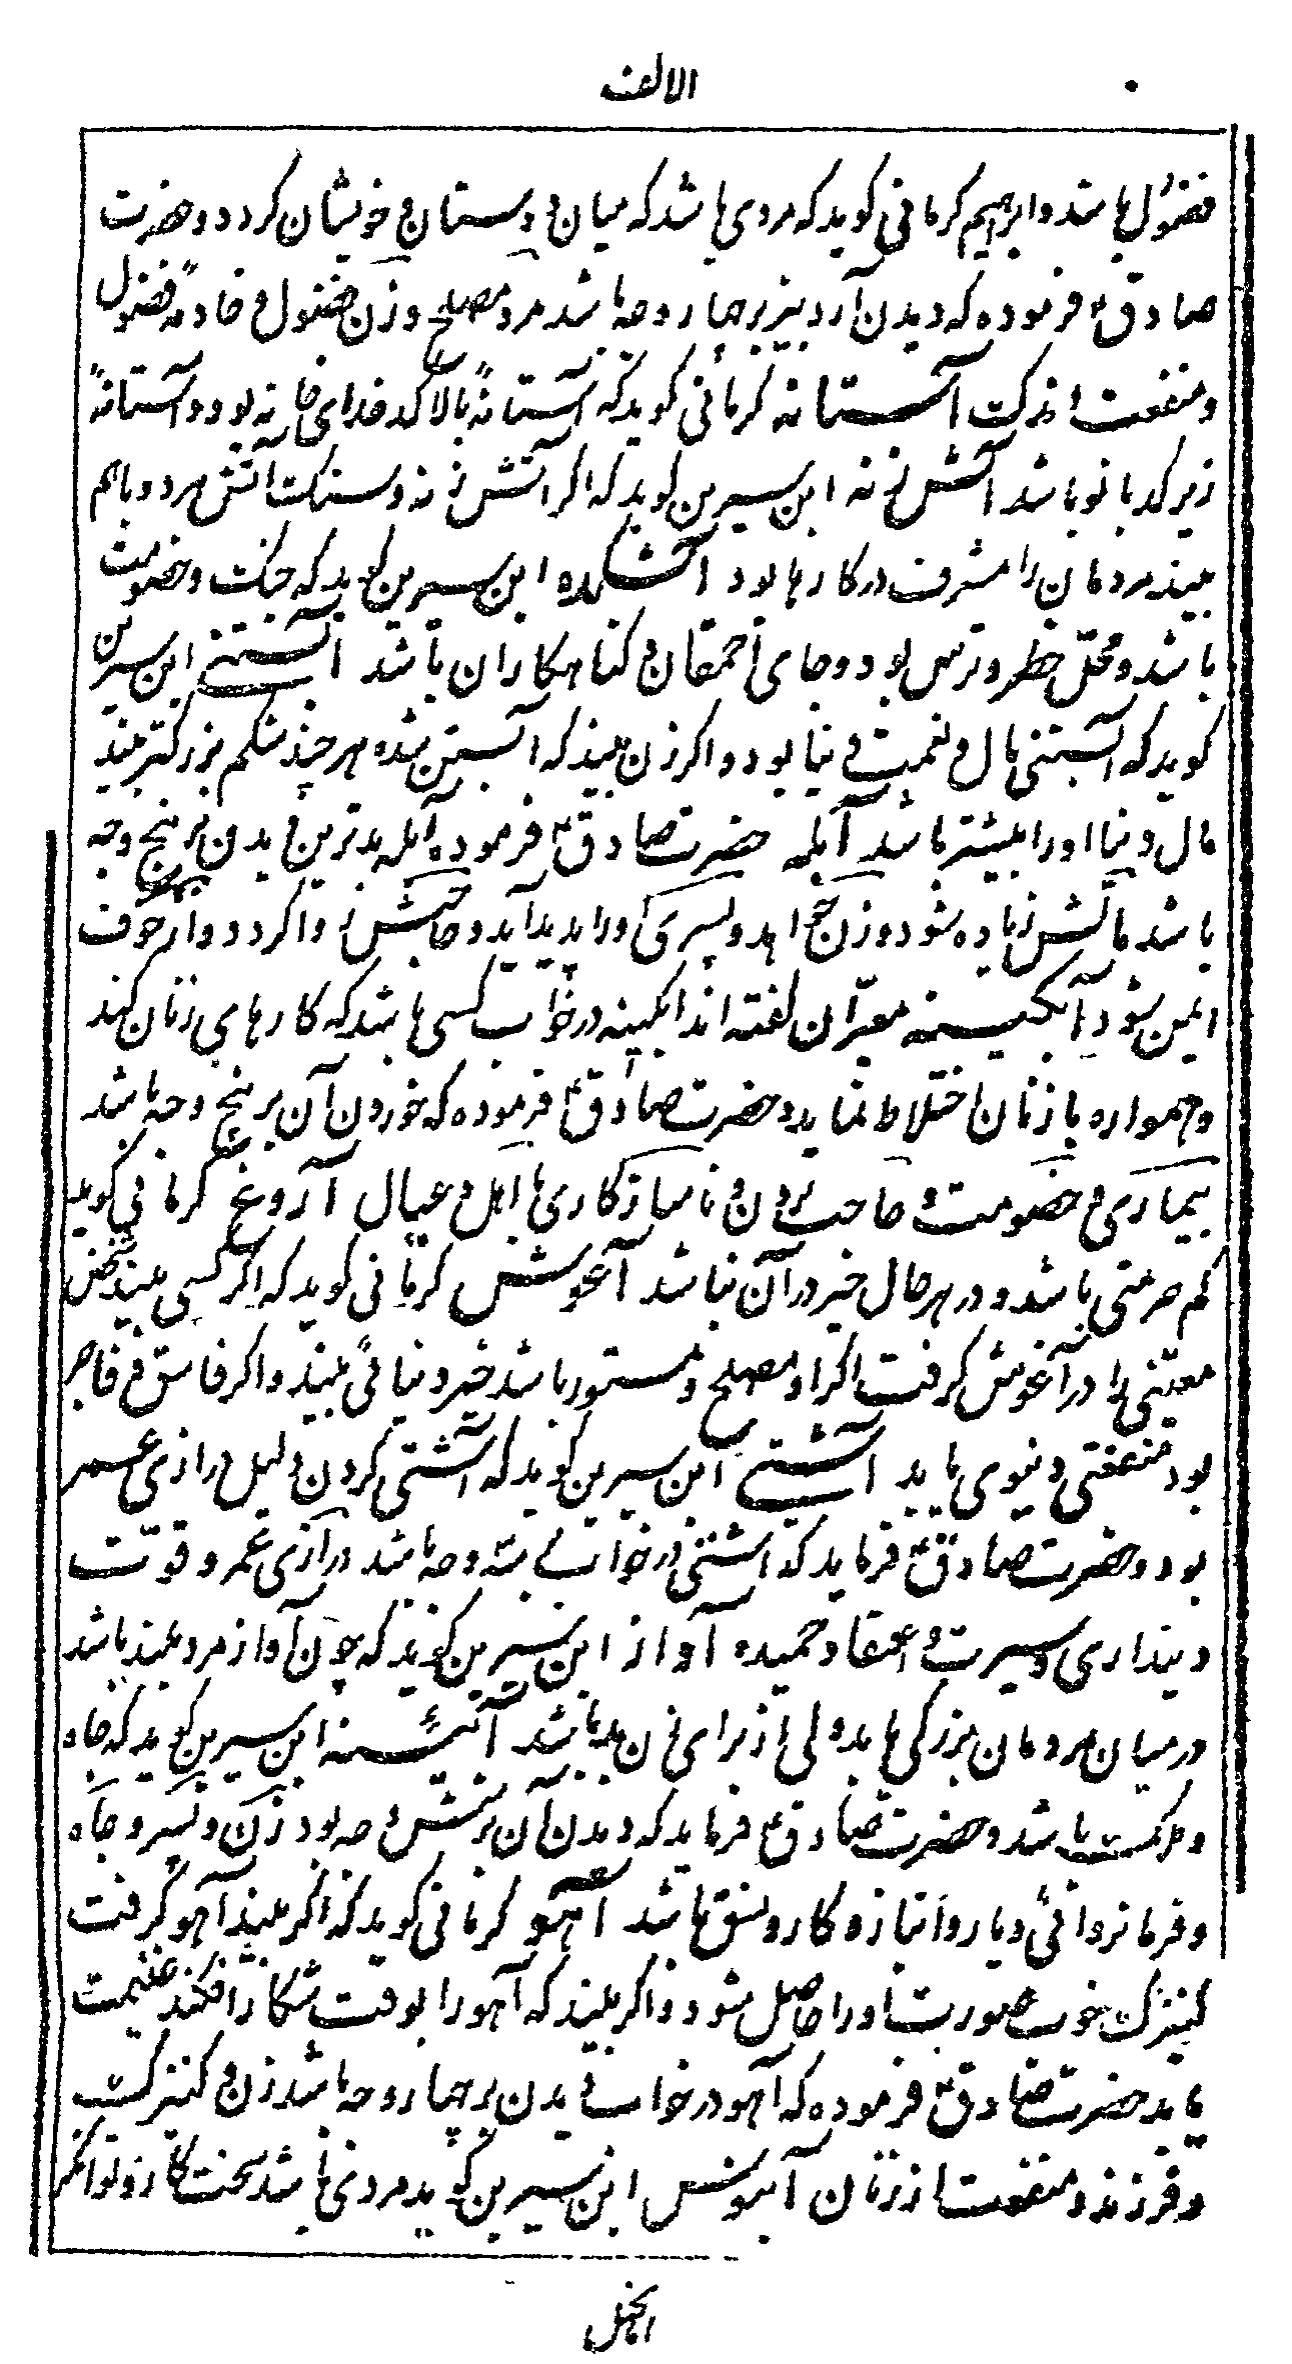 الالف
فضول باشد و ابرهیم کرمانی کوید که مردی باشد که میان دوستان و خویشان کردد و حضرت
صادق ع فرموده که دیدن آردبیز بر چهار وجه باشد مرد مصلح و زن فضول و خادمهٔ فضول
و منفعت اندک آستانه کرمانی کوید که آستانهٔ بالا کدخدای خانه بود و آستانهٔ
زیر کدبانو باشد آتش زنه ابن سیرین کوید که اکر آتش زنه و سنک آتش هر دو باهم
بیند مردمان را مشرف در کارها بود آتشکده ابن سیرین کوید که جنک و خصومت
باشد و محلّ خطر و ترس بود و جای احمقان و کناهکاران باشد آبستنی ابن سیرین
کوید که آبستنی مال و نعمت دنیا بود و اکر زن بیند که آبستن شده هر چند شکم بزرکتر بیند
مال دنیا او را بیشتر باشد آبله حضرت صادق ع فرموده آبله بدترین دیدن بر پنج وجه
باشد مالش زیاده شود و زن خواهد و پسری او را پدید آید و حاجتش روا کردد و از خوف
ایمن شود آبکینه معبّران کفته اند آبکینه در خواب کسی باشد که کارهای زنان کند
و همواره با زنان اختلاط نماید و حضرت صادق ع فرموده که خوردن آن بر پنج وجه باشد
بیماری و خصومت و حاجت بردن و ناسازکاری با اهل و عیال آروغ کرمانی کوید
کم حرمتی باشد و در هر حال خیر در آن نباشد آغوش کرمانی کوید که اکر کسی بیند شخص
معیّنی را در آغوش کرفت اکر او مصلح و مستور باشد خیر دنیائی بیند و اکر فاسق و فاجر
بود منفعتی دنیوی یابد آشتی ابن سیرین کوید که آشتی کردن دلیل درازی عمر
بود و حضرت صادق ع فرماید که آشتی در خواب بسه وجه باشد درازی عمر و قوّت
دینداری و سیرت و اعتقاد حمیده آواز ابن سیرین کوید که چون آواز مرد بلند باشد
در میان مردمان بزرکی یابد ولی از برای زن بد باشد آئینه ابن سیرین کوید که جاه
و ملکت باشد و حضرت صادق ع فرماید که دیدن آن بر شش وجه بود زن و پسر و جاه
و فرمانروائی و یار و انباز و کار روشن باشد آهو کرمانی کوید که اکر بیند آهو کرفت
کنیزک خوب صورت او را حاصل شود و اکر بیند که آهو را بوقت شکار افکند غنیمت
یابد حضرت صادق ع فرموده که آهو در خواب دیدن بر چهار وجه باشد زن و کنیزک
و فرزند و منفعت از زنان آبنوس ابن سیرین کوید مردی باشد سخت کار و توانکر